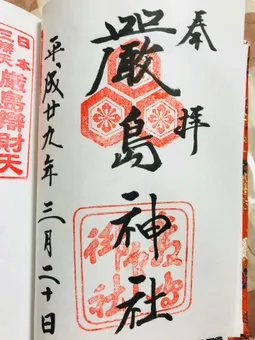 奉拝
嚴島神社
平成廿九年三月二十日
日本
三辨天
嚴島辨財天